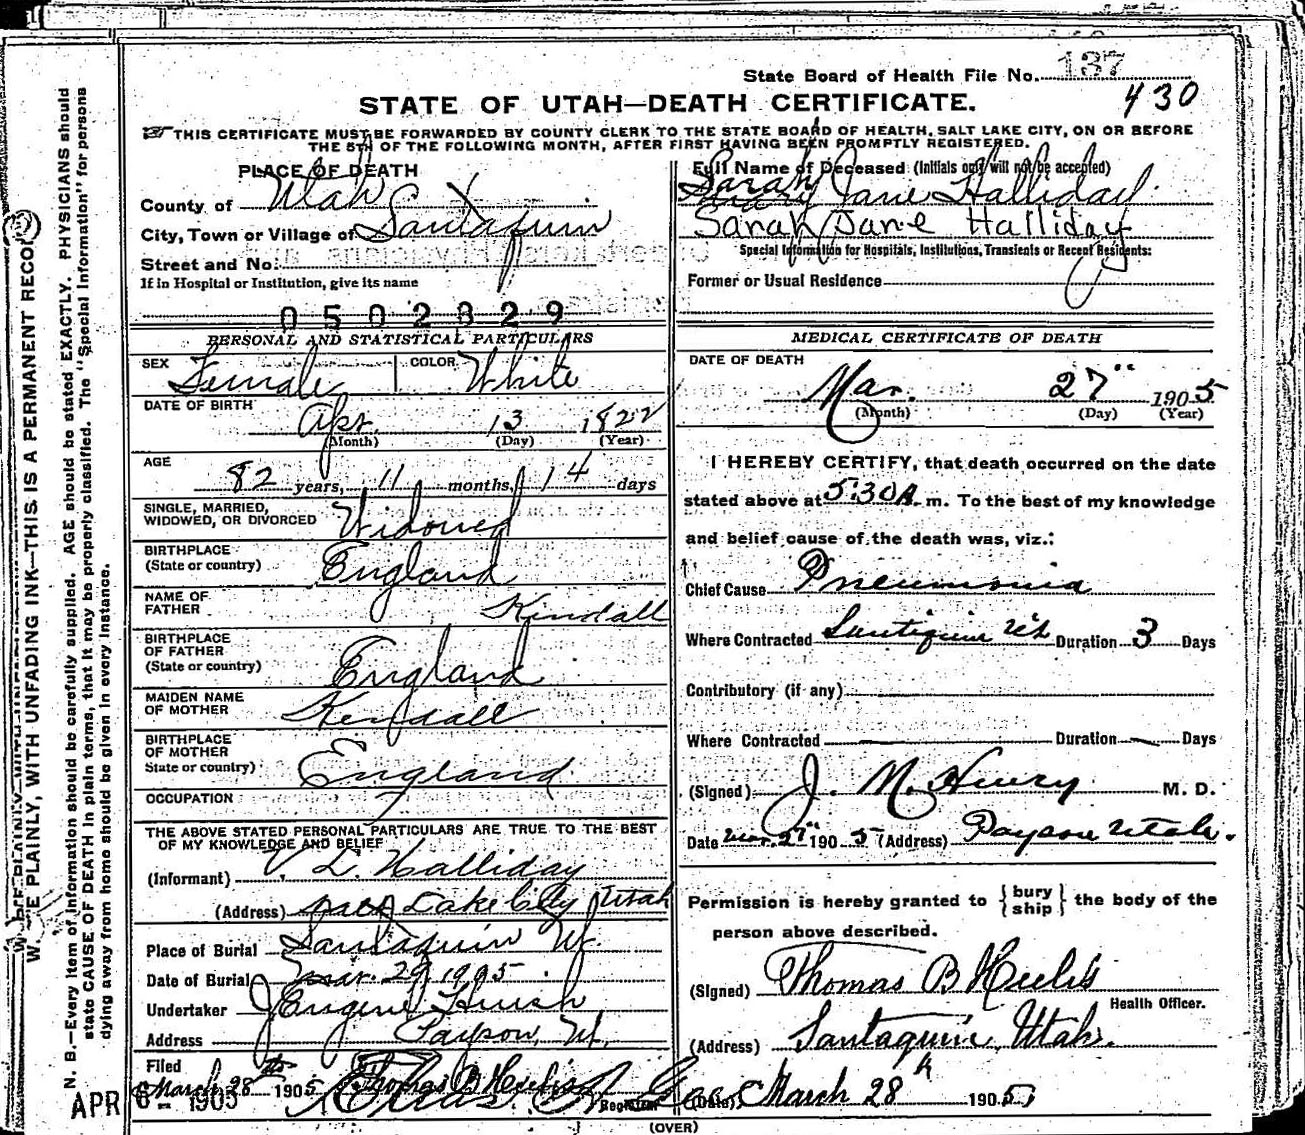 State Board of Health File No. 137
430
STATE OF UTAH—DEATH CERTIFICATE.
THIS CERTIFICATE MUST BE FORWARDED BY COUNTY CLERK TO THE STATE BOARD OF HEALTH, SALT LAKE CITY, ON OR BEFORE
THE 5TH OF THE FOLLOWING MONTH, AFTER FIRST HAVING BEEN PROMPTLY REGISTERED.
PLACE OF DEATH
County of Utah
City, Town or Village of Santaquin
Street and No.
If in Hospital or Institution, give its name
0502829
Full Name of Deceased (Initials only will not be accepted)
Sarah Jane Halliday.
Sarah Jane Halliday
Special Information for Hospitals, Institutions, Transients or Recent Residents:
Former or Usual Residence
PERSONAL AND STATISTICAL PARTICULARS
SEX Female COLOR White
DATE OF BIRTH
Apr. 13 1822
(Month) (Day) (Year)
AGE
82 years, 11 months, 14 days
SINGLE, MARRIED,
WIDOWED, OR DIVORCED Widowed
BIRTHPLACE
(State or country) England
NAME OF
FATHER Kindall
BIRTHPLACE
OF FATHER
(State or country) England
MAIDEN NAME
OF MOTHER Kendall
BIRTHPLACE
OF MOTHER
State or country) England
OCCUPATION
THE ABOVE STATED PERSONAL PARTICULARS ARE TRUE TO THE BEST
OF MY KNOWLEDGE AND BELIEF
(Informant) V. L. Halliday
(Address) Salt Lake City Utah
Place of Burial Santaquin Ut
Date of Burial Mar. 29, 1905.
Undertaker J Eugene Huish
Address Payson, Ut.
Filed
March 28th 1905 Thomas B Heelis
Registrar
APR 6- 1905
MEDICAL CERTIFICATE OF DEATH
DATE OF DEATH
Mar. 27" 1905
(Month) (Day) (Year)
I HEREBY CERTIFY, that death occurred on the date
stated above at 5:30 A. m. To the best of my knowledge
and belief cause of the death was, viz.:
Chief Cause Pneumonia
Where Contracted Santiquin Ut Duration 3 Days
Contributory (if any)
Where Contracted Duration Days
(Signed) J. M. Henry M. D.
Date Mar. 27" 1905 (Address) Payson Utah.
Permission is hereby granted to { bury
ship } the body of the
person above described.
(Signed) Thomas B Heelis
Health Officer.
(Address) Santaquin, Utah.
(Date) March 28th 1905
(OVER)
W. PLAINLY, WITH UNFADING INK—THIS IS A PERMANENT RECORD
N. B.—Every item of information should be carefully supplied. AGE should be stated EXACTLY. PHYSICIANS should
state CAUSE OF DEATH in plain terms, that it may be properly classified. The "Special Information" for persons
dying away from home should be given in every instance.